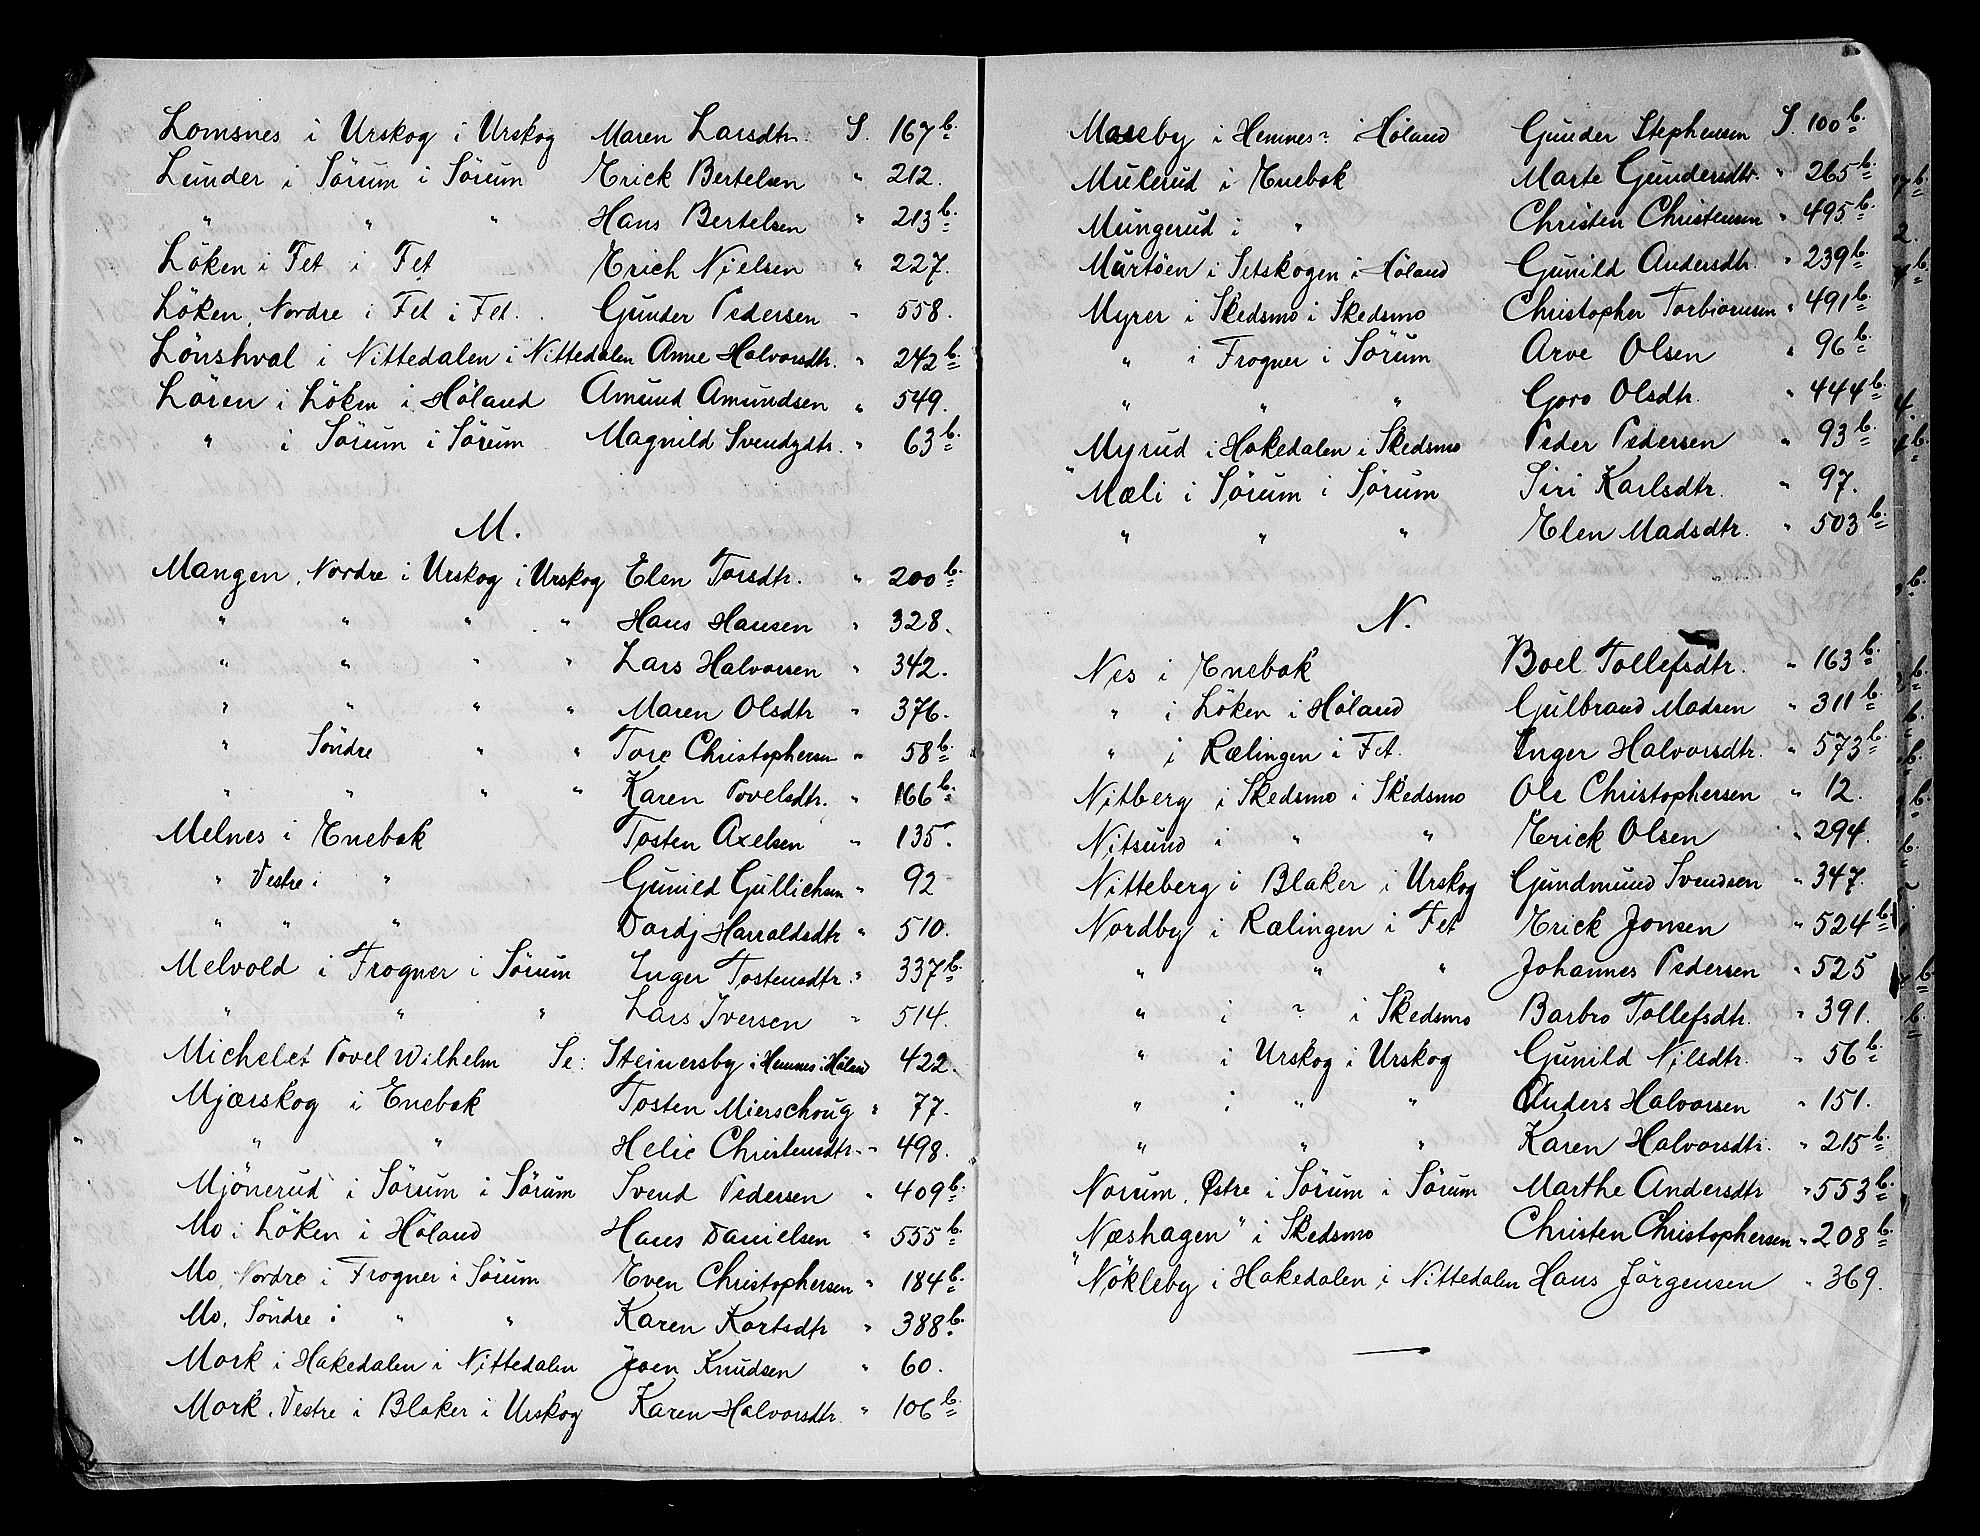 Lomsnes i Urskog i Urskog Maren Larsdtr. S. 167 b.
Lunder i Sörum i Sörum Erick Bertelsen " 212.
" " " Hans Bertelsen " 213 b.
Löken i Fet i Fet Erich Nielsen " 227.
Löken, Nordre i Fet i Fet. Gunder Pedersen " 558.
Lönshval i Nittedalen i Nittedalen Anne Halvorsdtr. " 242 b.
Lören i Löken i Höland Amund Amundsen " 549.
" i Sörum i Sörum Magnild Svendsdtr. " 63 b.
M.
Mangen, Nordre i Urskog i Urskog Elen Torsdtr. " 200 b.
" " " " Hans Hansen " 328.
" " " " Lars Halvorsen " 342.
" " " " Maren Olsdtr " 376.
" Söndre " " Tore Christophersen " 58 b.
" " " " Karen Povelsdtr. " 166 b.
Melnes i Enebak Tosten Axelsen " 135.
" Vestre i " Gunild Gullichsen " 92
" " " Dordj Harraldsdtr " 510.
Melvold i Frogner i Sörum Inger Tostensdtr. " 337 b.
" " " Lars Iversen " 514.
Michelet Povel Wilhelm Se: Steinersby i Hemnes i Höland 422.
Mjærskog i Enebak Tosten Mierschoug " 77.
" " " Helie Christensdtr. " 498.
Mjönerud i Sörum i Sörum Svend Pedersen " 409 b.
Mo i Löken i Höland Hans Danielsen " 555 b.
Mo, Nordre i Frogner i Sörum Even Christophersen " 184 b.
Mo, Söndre i " " Karen Kortsdtr " 388 b.
Mork i Hakedalen i Nittedalen Joen Knudsen " 60.
Mork, Vestre i Blaker i Urskog Karen Halvorsdtr. " 106 b.
Moseby i Hemnes? i Höland Gunder Stephensen S. 100 b.
Mulerud i Enebak Marte Gundersdtr. " 265 b.
Mungerud i " Christen Christensen " 495 b.
Murtöen i Setskogen i Höland Gunild Andersdtr. " 239 b.
Myrer i Skedsmo i Skedsmo Christopher Torbiornsen " 491 b.
" i Frogner i Sörum Arve Olsen " 96 b.
" " " Goro Olsdtr. " 444 b.
Myrud i Hakedalen i Skedsmo Peder Pedersen " 93 b.
" Mæli i Sörum i Sörum Siri Karlsdtr. " 97.
" " " Elen Madsdtr. " 503 b.
N.
Nes i Enebak Boel Tollefsdtr. " 163 b.
" i Löken i Höland Gulbrand Madsen " 311 b.
" i Rælingen i Fet. Inger Halvorsdtr. " 573 b.
Nitberg i Skedsmo i Skedsmo Ole Christophersen " 12.
Nitsund i " " Erick Olsen " 294.
Nitteberg i Blaker i Urskog Gundmund Svendsen " 347.
Nordby i Rælingen i Fet Erick Jonsen " 524 b.
" " " Johannes Pedersen " 525
" i ? i Skedsmo Barbro Tollefsdtr. " 391.
" i Urskog i Urskog Gunild Nilsdtr. " 56 b.
" i " " Anders Halvorsen " 151.
" " " Karen Halvorsdtr. " 215 b.
Norum, Østre i Sörum i Sörum Marthe Andersdtr " 553 b.
Næshagen" i Skedsmo Christen Christophersen " 208 b.
" Nökleby i Hakedalen i Nittedalen Hans Jörgensen " 369.